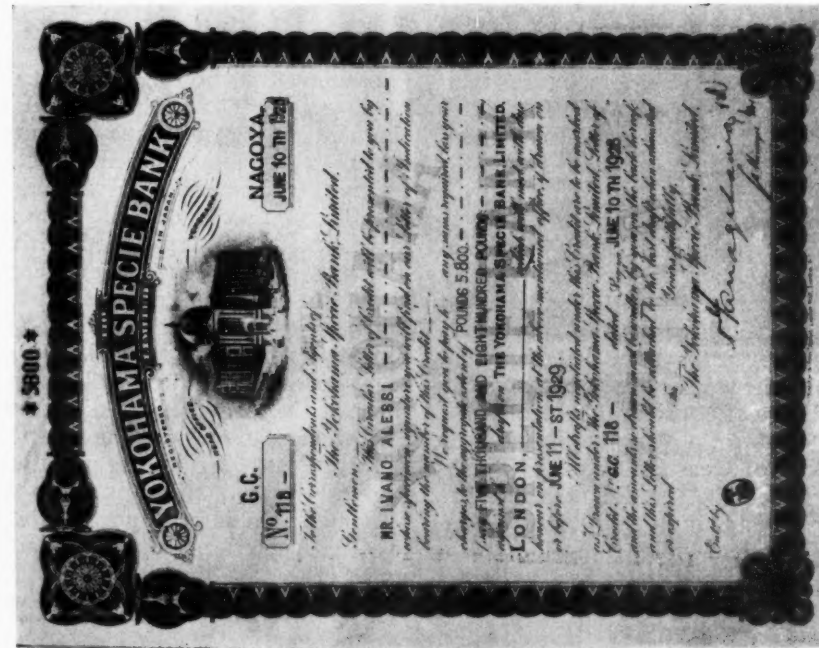 * 5800 *
THE
YOKOHAMA SPECIE BANK
LIMITED
REGISTERED IN JAPAN
G.C.
No. 118 -
NAGOYA,
JUNE 10 TH 1928
To the Correspondents and Agents of
The Yokohama Specie Bank, Limited.
Gentlemen,
This Circular Letter of Credit will be presented to you by
MR. IVANO ALESSI
whose specimen signature you will find in our Letter of Indication
bearing the number of this Credit.
We request you to pay to any sums required, less your
charges to the aggregate extent of POUNDS 5.800.
(say FIVE THOUSAND AND EIGHT HUNDRED POUNDS
against drafts on THE YOKOHAMA SPECIE BANK, LIMITED.
LONDON, which will meet with due
honour on presentation at the above mentioned office, if drawn on
or before JUNE 11 - ST 1929
All drafts negotiated under this Credit are to be marked
as Drawn under The Yokohama Specie Bank Limited, Letter of
Credit No. GC 118 - dated JUNE 10 TH 1928
and the amounts so drawn must be written by you on the back hereof,
and this Letter should be attached to the last draft when exhausted
or expired.
Yours faithfully,
The Yokohama Specie Bank, Limited.
Ent'd by